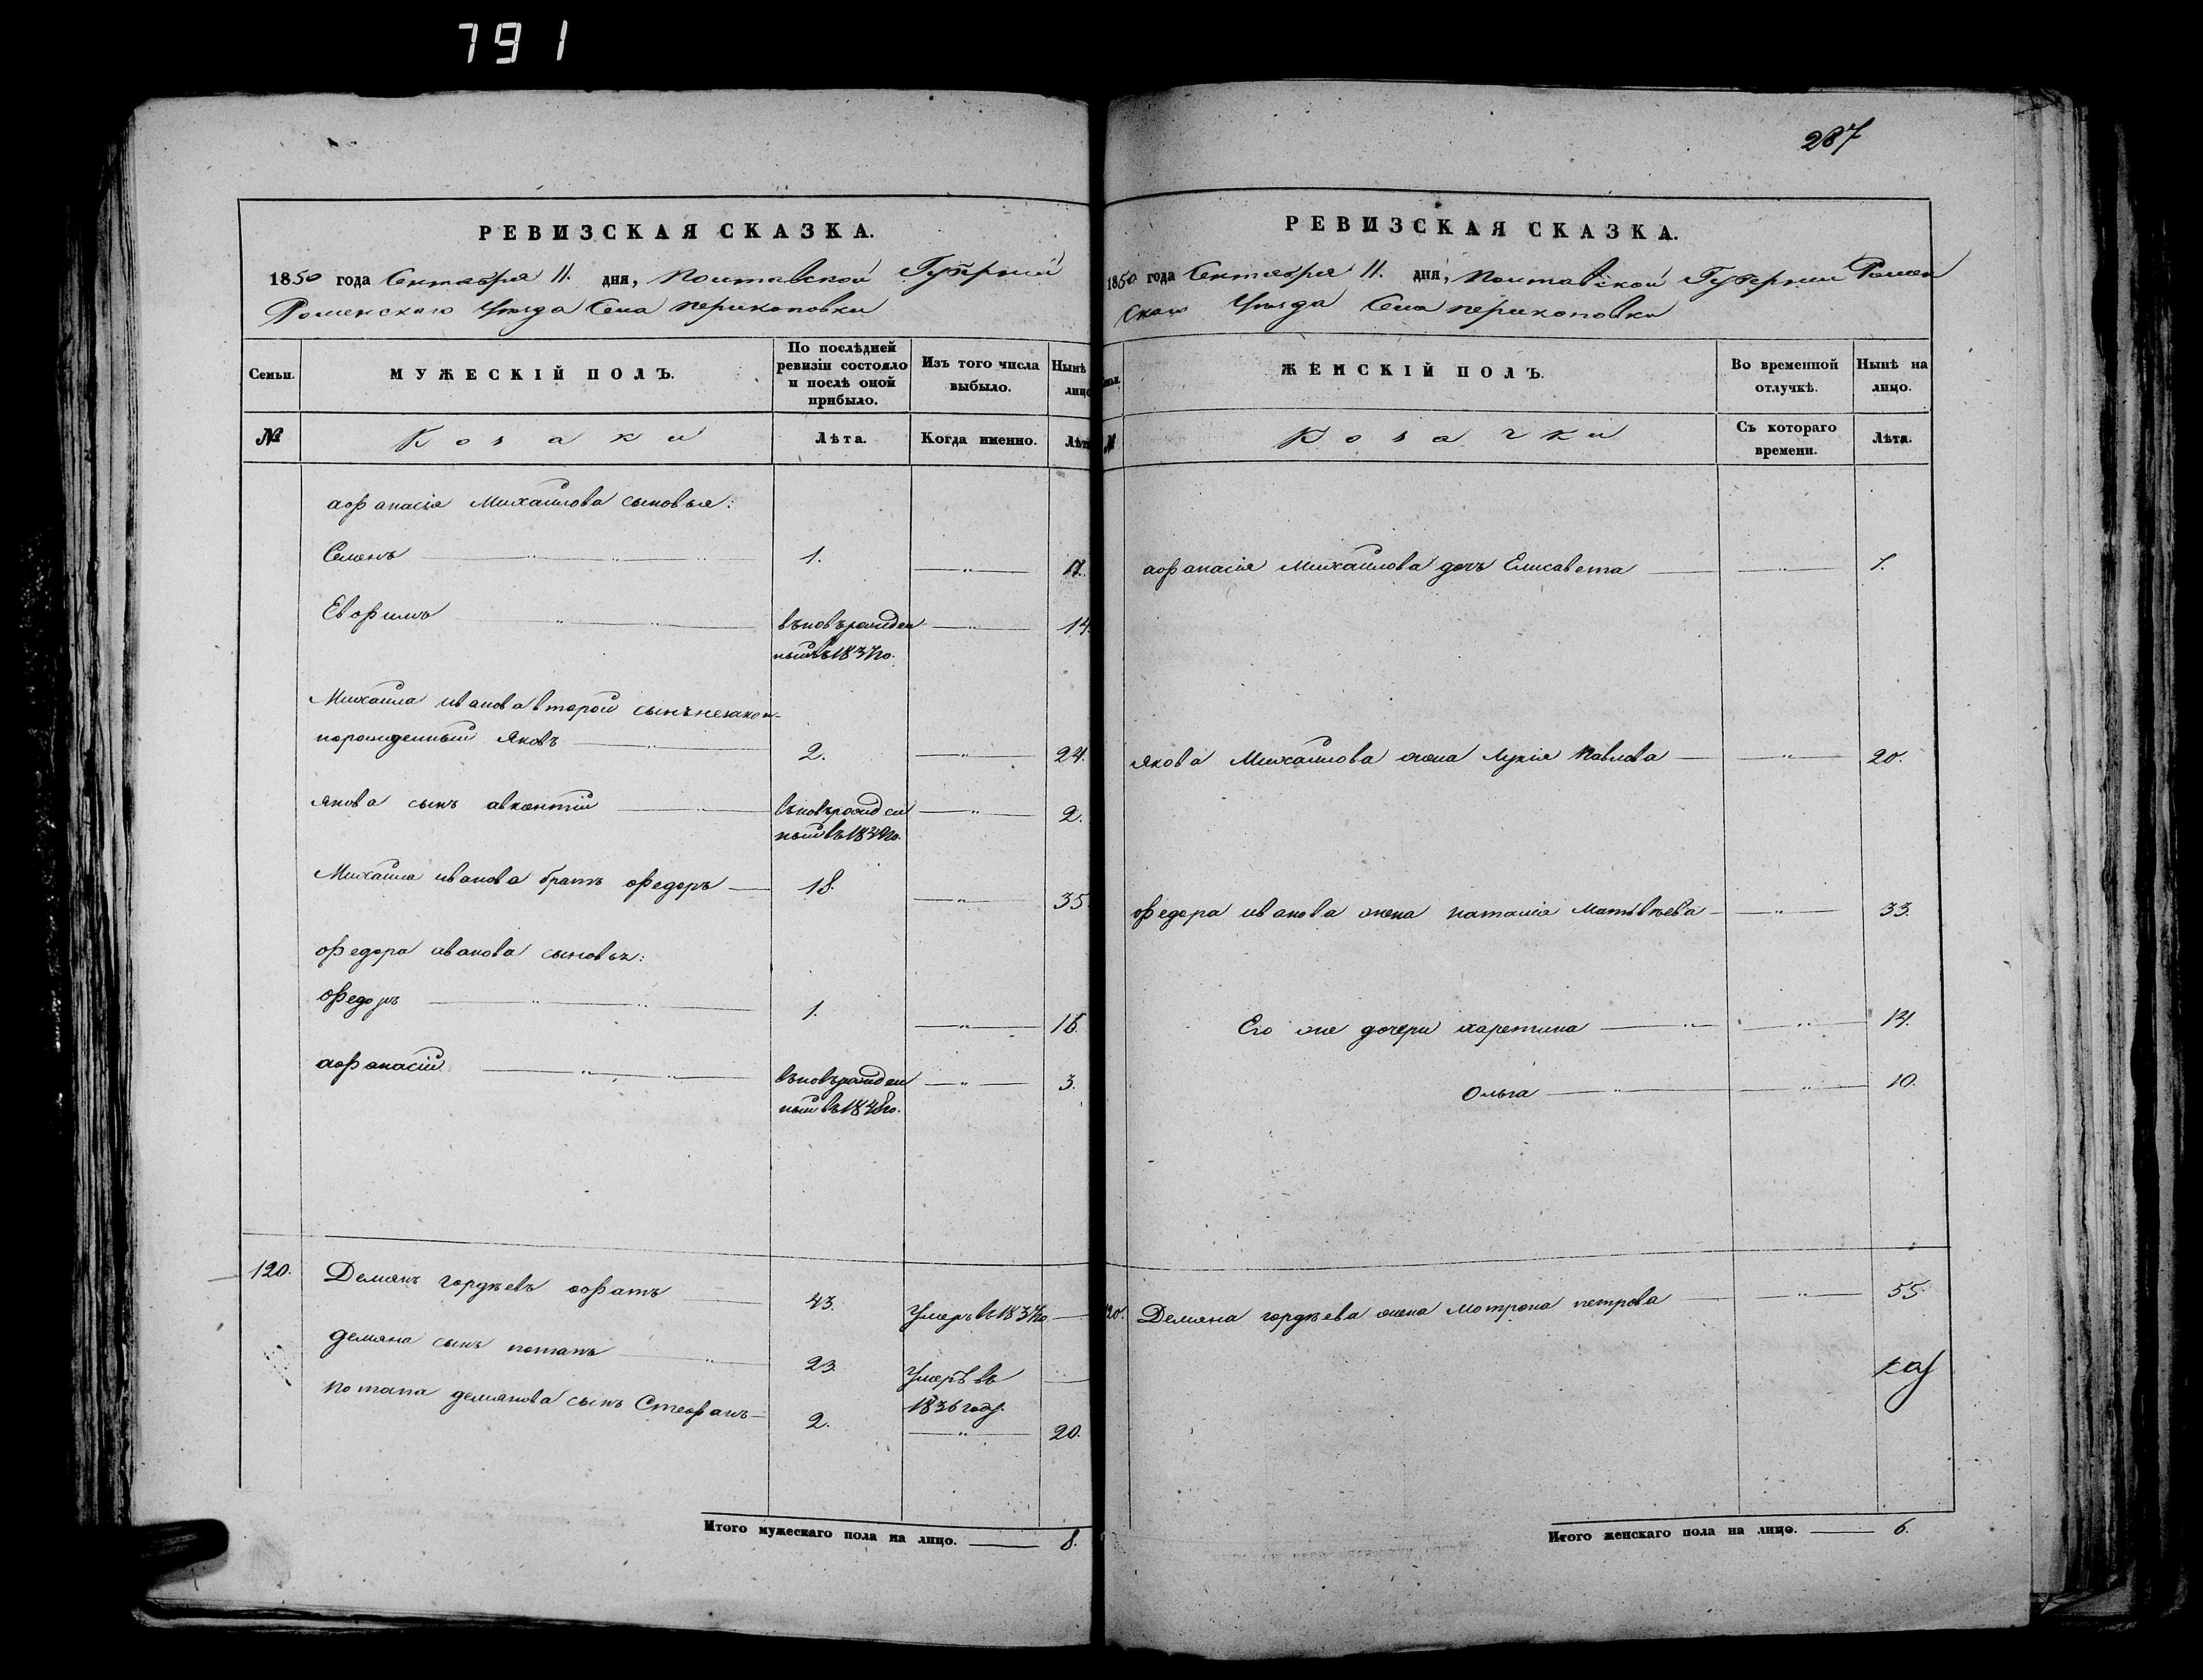 791
РЕВИЗСКАЯ СКАЗКА.
1850 года Сентября 11. дня, Полтавской Губерніи
Роменскаго Уѣзда Села Перекоповки
Семьи.
МУЖЕСКІЙ ПОЛЪ.
По послѣдней
ревизіи состояло
и послѣ оной
прибыло.
Изъ того числа
выбыло.
Нынѣ
лицо
№
Козаки
Лѣта.
Когда именно.
Лѣт
Афанасія Михайлова сыновья:
Семенъ 1. 17.
Евфимъ 14.
въ 1837го.
Михайла Иванова второй сынъ незакон-
норожденный Яковъ 2. 24.
Якова сынъ Авксентій 2.
Михайла Иванова братъ Федоръ 18. 35
Федора Иванова сыновья:
Федоръ 1. 16.
Афанасій 3.
ный въ 1848го.
120. Демянъ Гордѣевъ 43. Умеръ въ 1837го
Демяна сынъ Потапъ 23. Умеръ въ
1836 году.
Потапа Демянова сынъ Стефанъ 2. 20.
Итого мужескаго пола на лицо. 8.
287
РЕВИЗСКАЯ СКАЗКА.
1850 года Сентября 11. дня, Полтавской Губерніи Ромен
скаго Уѣзда Села Перекоповки
ЖЕНСКІЙ ПОЛЪ.
Во временной
отлучкѣ.
Нынѣ на
лицо.
Козачки
Съ котораго
времени.
Лѣта.
Афанасія Михайлова дочь Елисавета 1.
Якова Михайлова жена Лукія Павлова 20.
Федора Иванова жена Наталія Матвѣева 33.
Его же дочери Харетина 14.
Ольга 10.
Демяна Гордѣева жена Мотрона Петрова 55
Итого женскаго пола на лицо. 6.